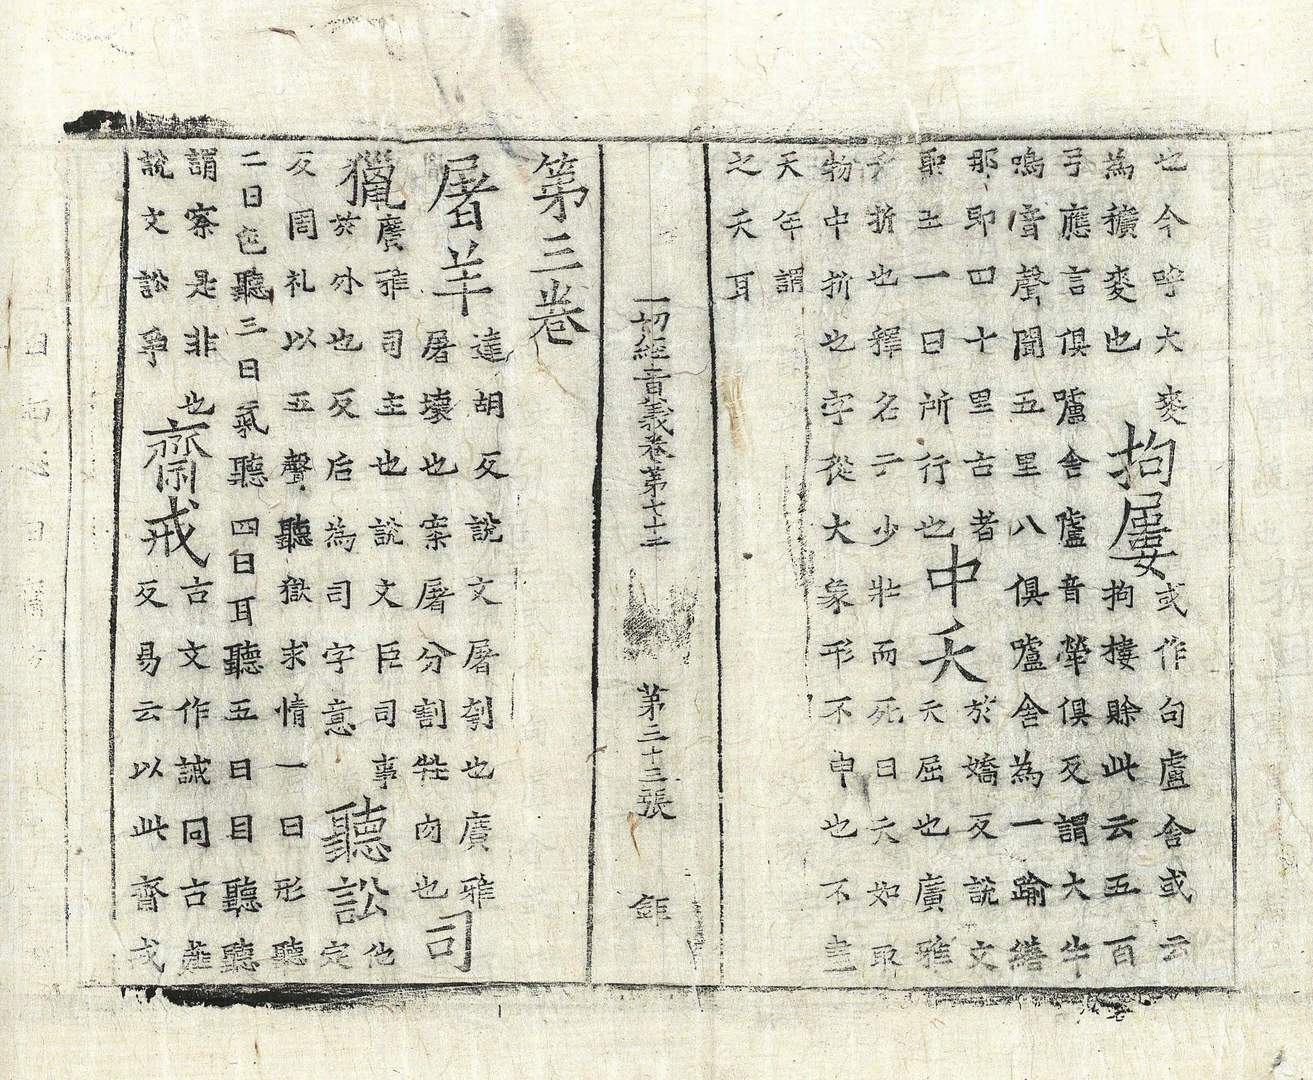 也今呼大麥
為穬麥也
拘屢
或作句盧舍或云
拘摟賒此云五百
弓應言俱嚧舍盧音犖俱反謂大牛
鳴音聲聞五里八俱嚧舍為一踰繕
那即四十里古者
聖王一日所行也
中夭
於嬌反說文
夭屈也廣雅
夭折也釋名云少壯而死曰夭如取
物中折也字從大象形不申也不盡
天年謂
之夭耳
一切經音義卷第七十三 第二十三張 鉅
第三卷
屠羊
達胡反說文屠刳也廣雅
屠壞也案屠分割牲肉也
司
獵
廣雅司主也說文臣司事
於外也反后為司字意
聽訟
他
定
反周礼以五聲聽獄求情一曰形聽
二曰色聽三曰氣聽四曰耳聽五曰目聽聽
謂察是非也
說文訟爭
齋戒
古文作誡同古薤
反易云以此齋戒